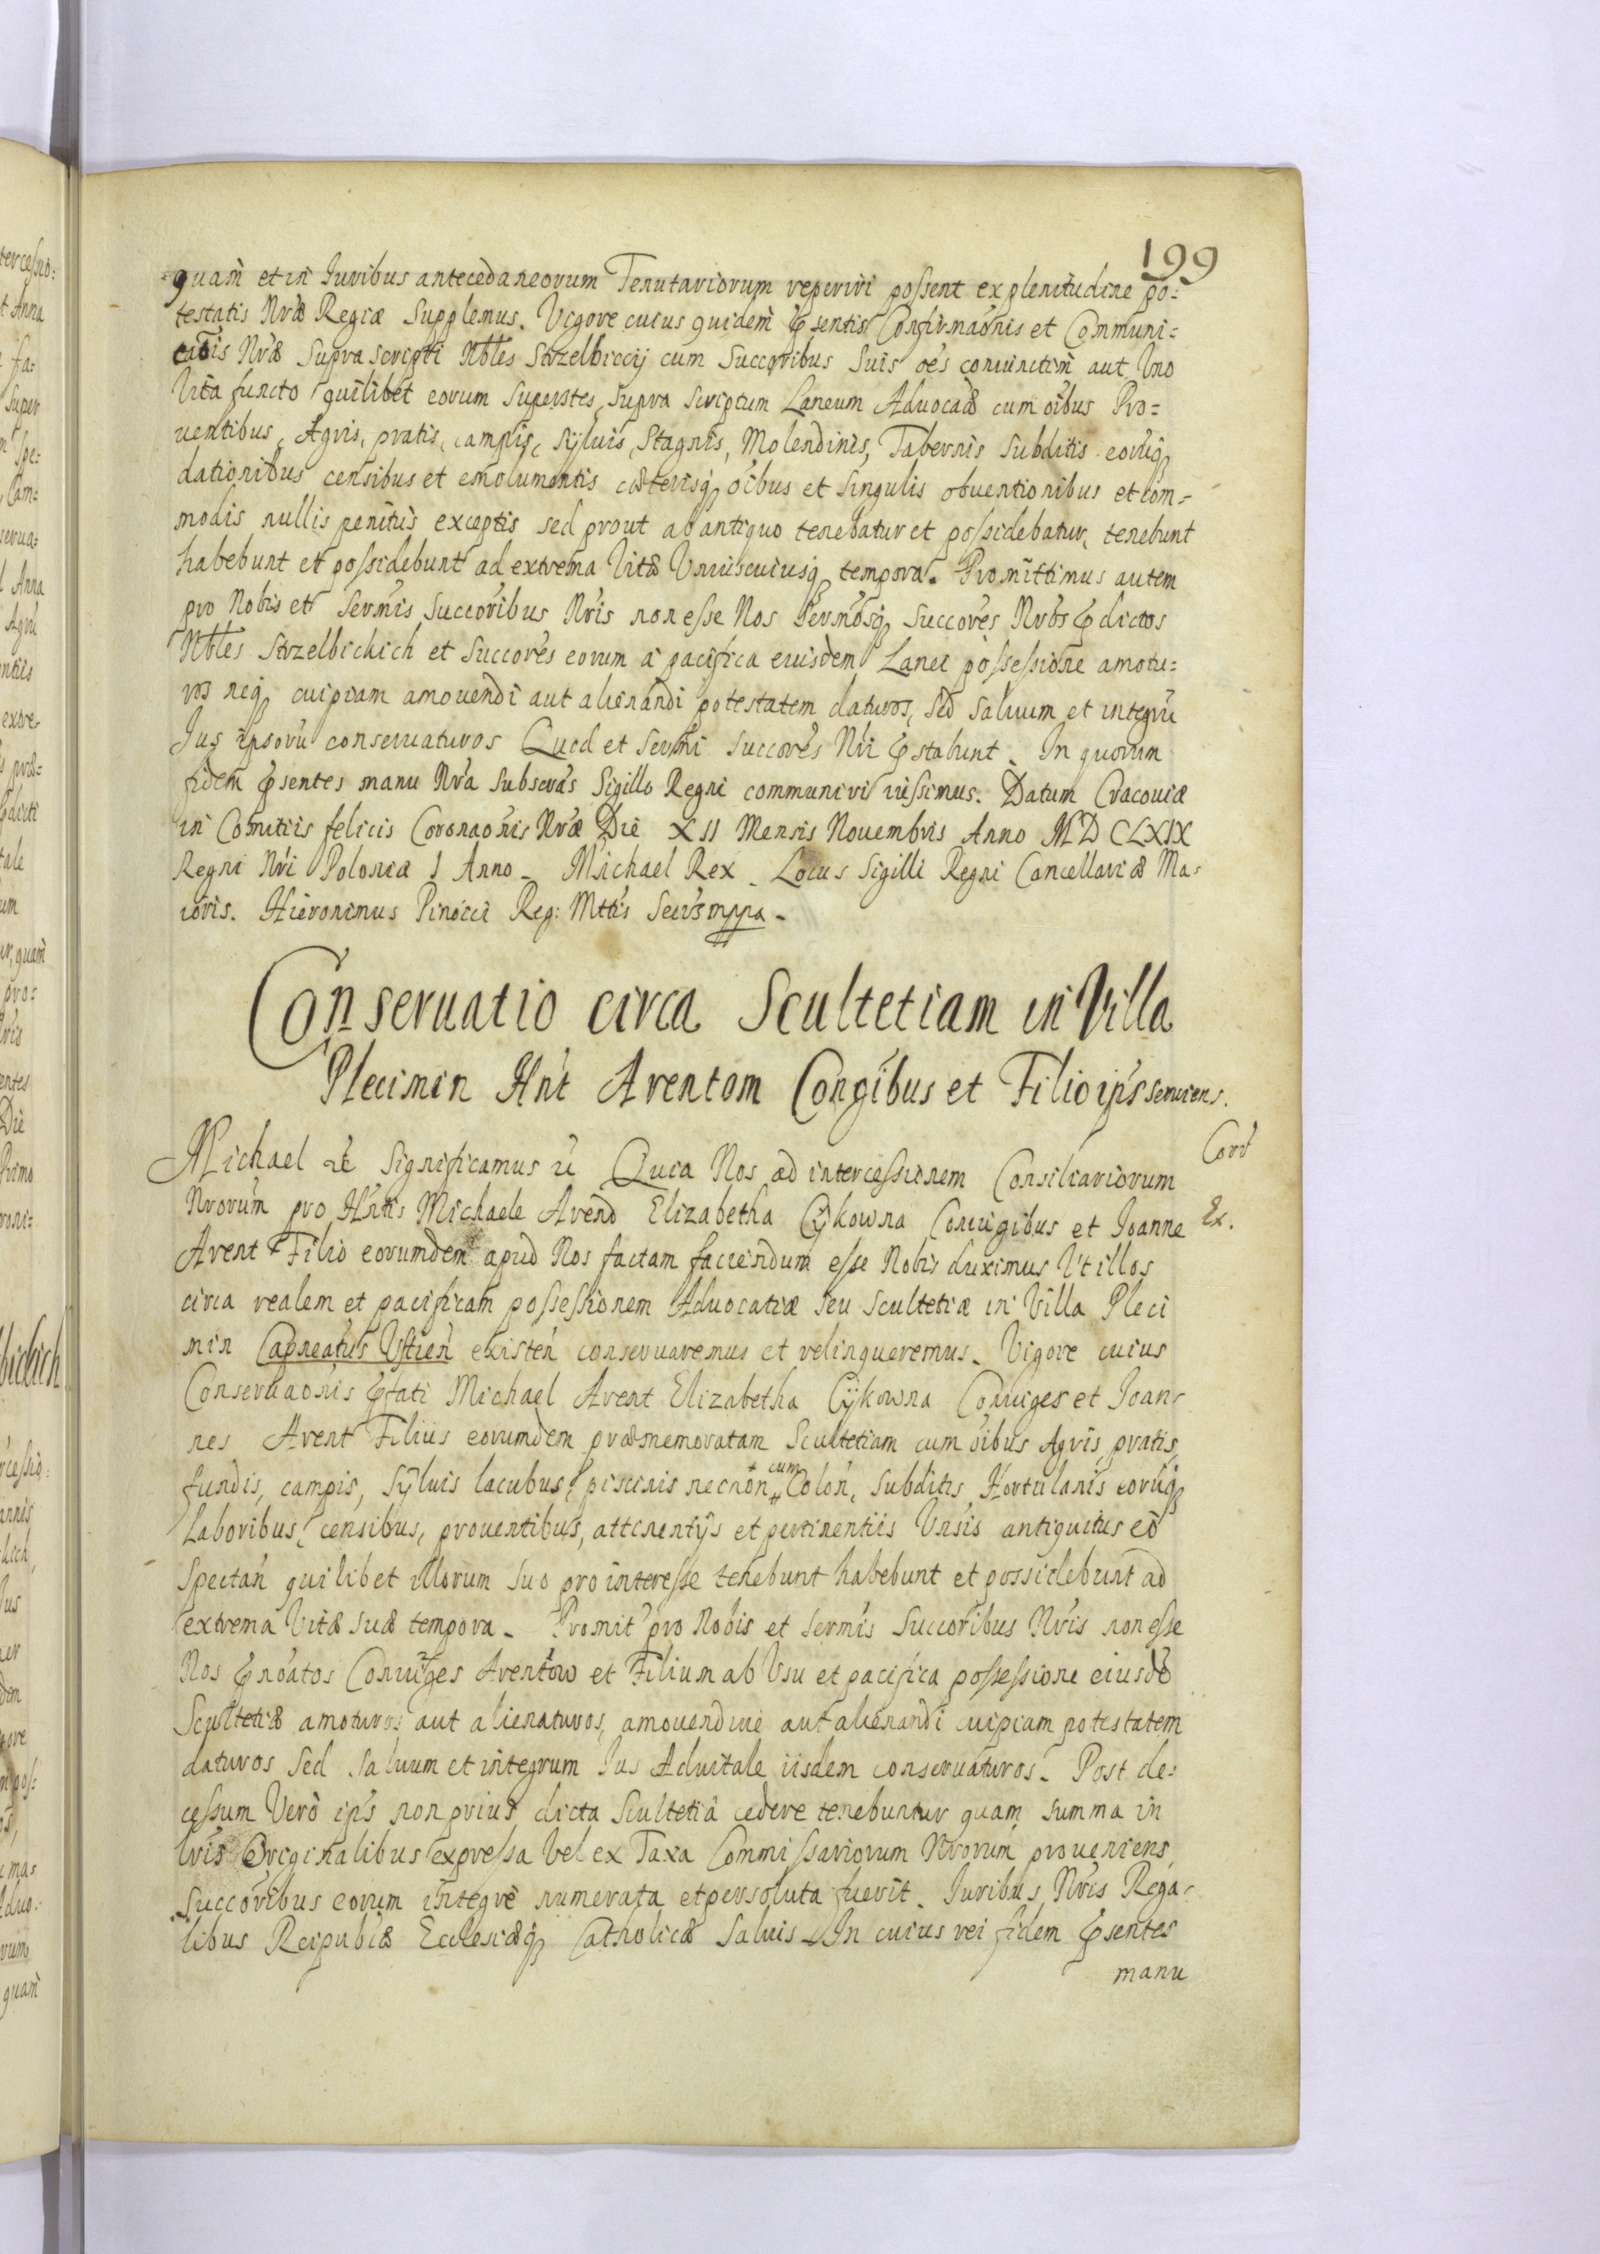 199
quam et in Iuribus antecedaneorum Tenutariorum reperiri possent ex plenitudine po=
testatis Nræ Regiæ Supplemus. Vigore cuius quidem Pñsentis Confirmaõnis et Communi=
caõis Nræ supra scripti Nbles Strzelbiccij cum Succoribus suis oẽs coniunctim aut Uno
Vita functo quilibet eorum superstes supra scriptum Laneum Aduocaæ cum oĩbus Pro=
uentibus, Agris, pratis, campis, syluis, Stagnis, Molendinis, Tabernis subditis eorũq
dationibus censibus et emolumentis cæterisq oĩbus et singulis obuentionibus et com=
modis nullis penitus exceptis sed prout ab antiquo tenebatur et possidebatur, tenebunt
habebunt et possidebunt ad extrema Vitæ Uniuscuiusq tempora. Promittimus autem
pro Nobis et Sermis succoribus Nris non esse Nos Sermosq succores Nros Pdictos
Nbles Strzelbickich et succores eorum a pacifica eiusdem Lanei possessione amotu=
ros neq cuipiam amouendi aut alienandi potestatem daturos, sed saluum et integrũ
Jus ipsorũ conseruaturos Quod et Sermi succores Nri Pstabunt. In quorum
fidem Psentes manu Nra subscras Sigillo Regni communiri iussimus. Datum Cracouiæ
in Comitiis felicis Coronaõnis Nræ Die XII Mensis Nouembris Anno MDCLXIX
Regni Nri Poloniæ I Anno. Michael Rex. Locus Sigilli Regni Cancellariæ Ma=
ioris. Hieronimus Pinocci Reg: Mttis Secrs mppa.
Conseruatio circa Scultetiam in Villa
Plecimin Hnt Arentom Congibus et Filio ips seruiens.
Michael etc Significamus etc Quia Nos ad intercessionem Consiliariorum
Corr
Nrorum pro Hntis Michaele Arend Elizabetha Cÿkowna Coniugibus et Joanne
Ex.
Arent Filio eorumdem apud Nos factam faciendum esse Nobis duximus Ut illos
circa realem et pacificam possessionem Aduocatiæ seu scultetiæ in Villa Pleci
min Capneatus Ustien existen conseruaremus et relinqueremus. Vigore cuius
Conseruaonis Pfati Michael Arent Elizabetha Cÿkowna Coniuges et Joan=
nes Arent Filius eorumdem præmemoratam Scultetiam cum oĩbus Agris, pratis,
fundis, campis, syluis lacubus, piscinis necnon cum Colon, subditis Hortulanis eorũq
Laboribus, censibus, prouentibus, attinentijs et pertinentiis Unsis antiquitus eo
spectan quilibet illorum suo pro interesse tenebunt habebunt et possidebunt ad
extrema Vitæ suæ tempora. Promit pro Nobis et Sermis Succoribus Nris non esse
Nos Pnoatos Coniuges Arentow et Filium ab Usu et pacifica possessione eiusdẽ
Scultetiæ amoturos aut alienaturos, amouendiue aut alienandi cuipiam potestatem
daturos sed saluum et integrum Jus Aduitale iisdem conseruaturos. Post de=
cessum Verò ips non prius dicta Scultetiâ cedere tenebuntur quam summa in
lris Originalibus expressa Vel ex Taxa Commissariorum Nrorum proueniens,
succoribus eorum integrè numerata et persoluta fuerit. Iuribus Nris Rega=
libus Reipubcæ Ecclesiæq Catholicæ saluis. In cuius rei fidem Psentes
manu